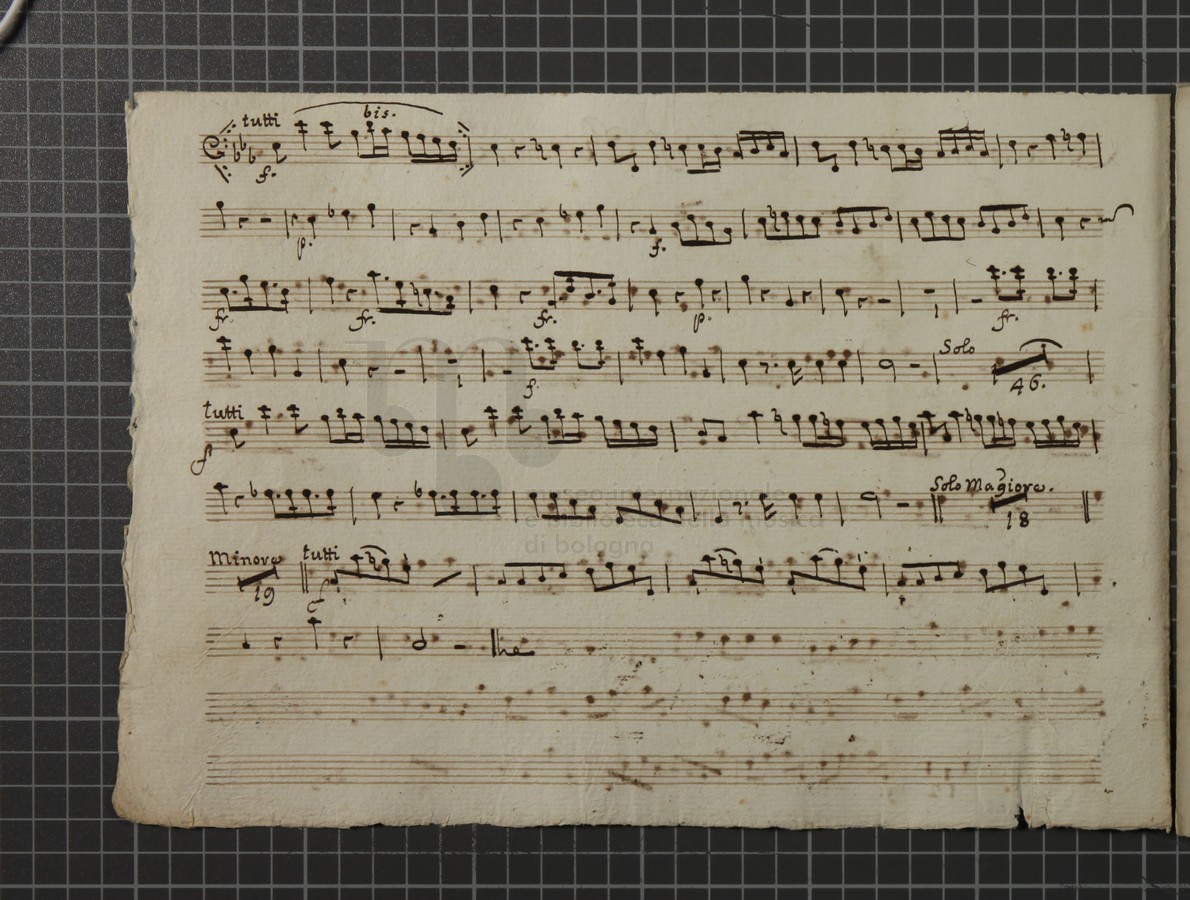 tutti bis.
f.
p. f.
fr. fr. fr. p. fr.
Solo
f. 46.
tutti
f
Solo Magiore.
18
museo internazionale
e biblioteca della musica
di bologna
Minore tutti
19 f